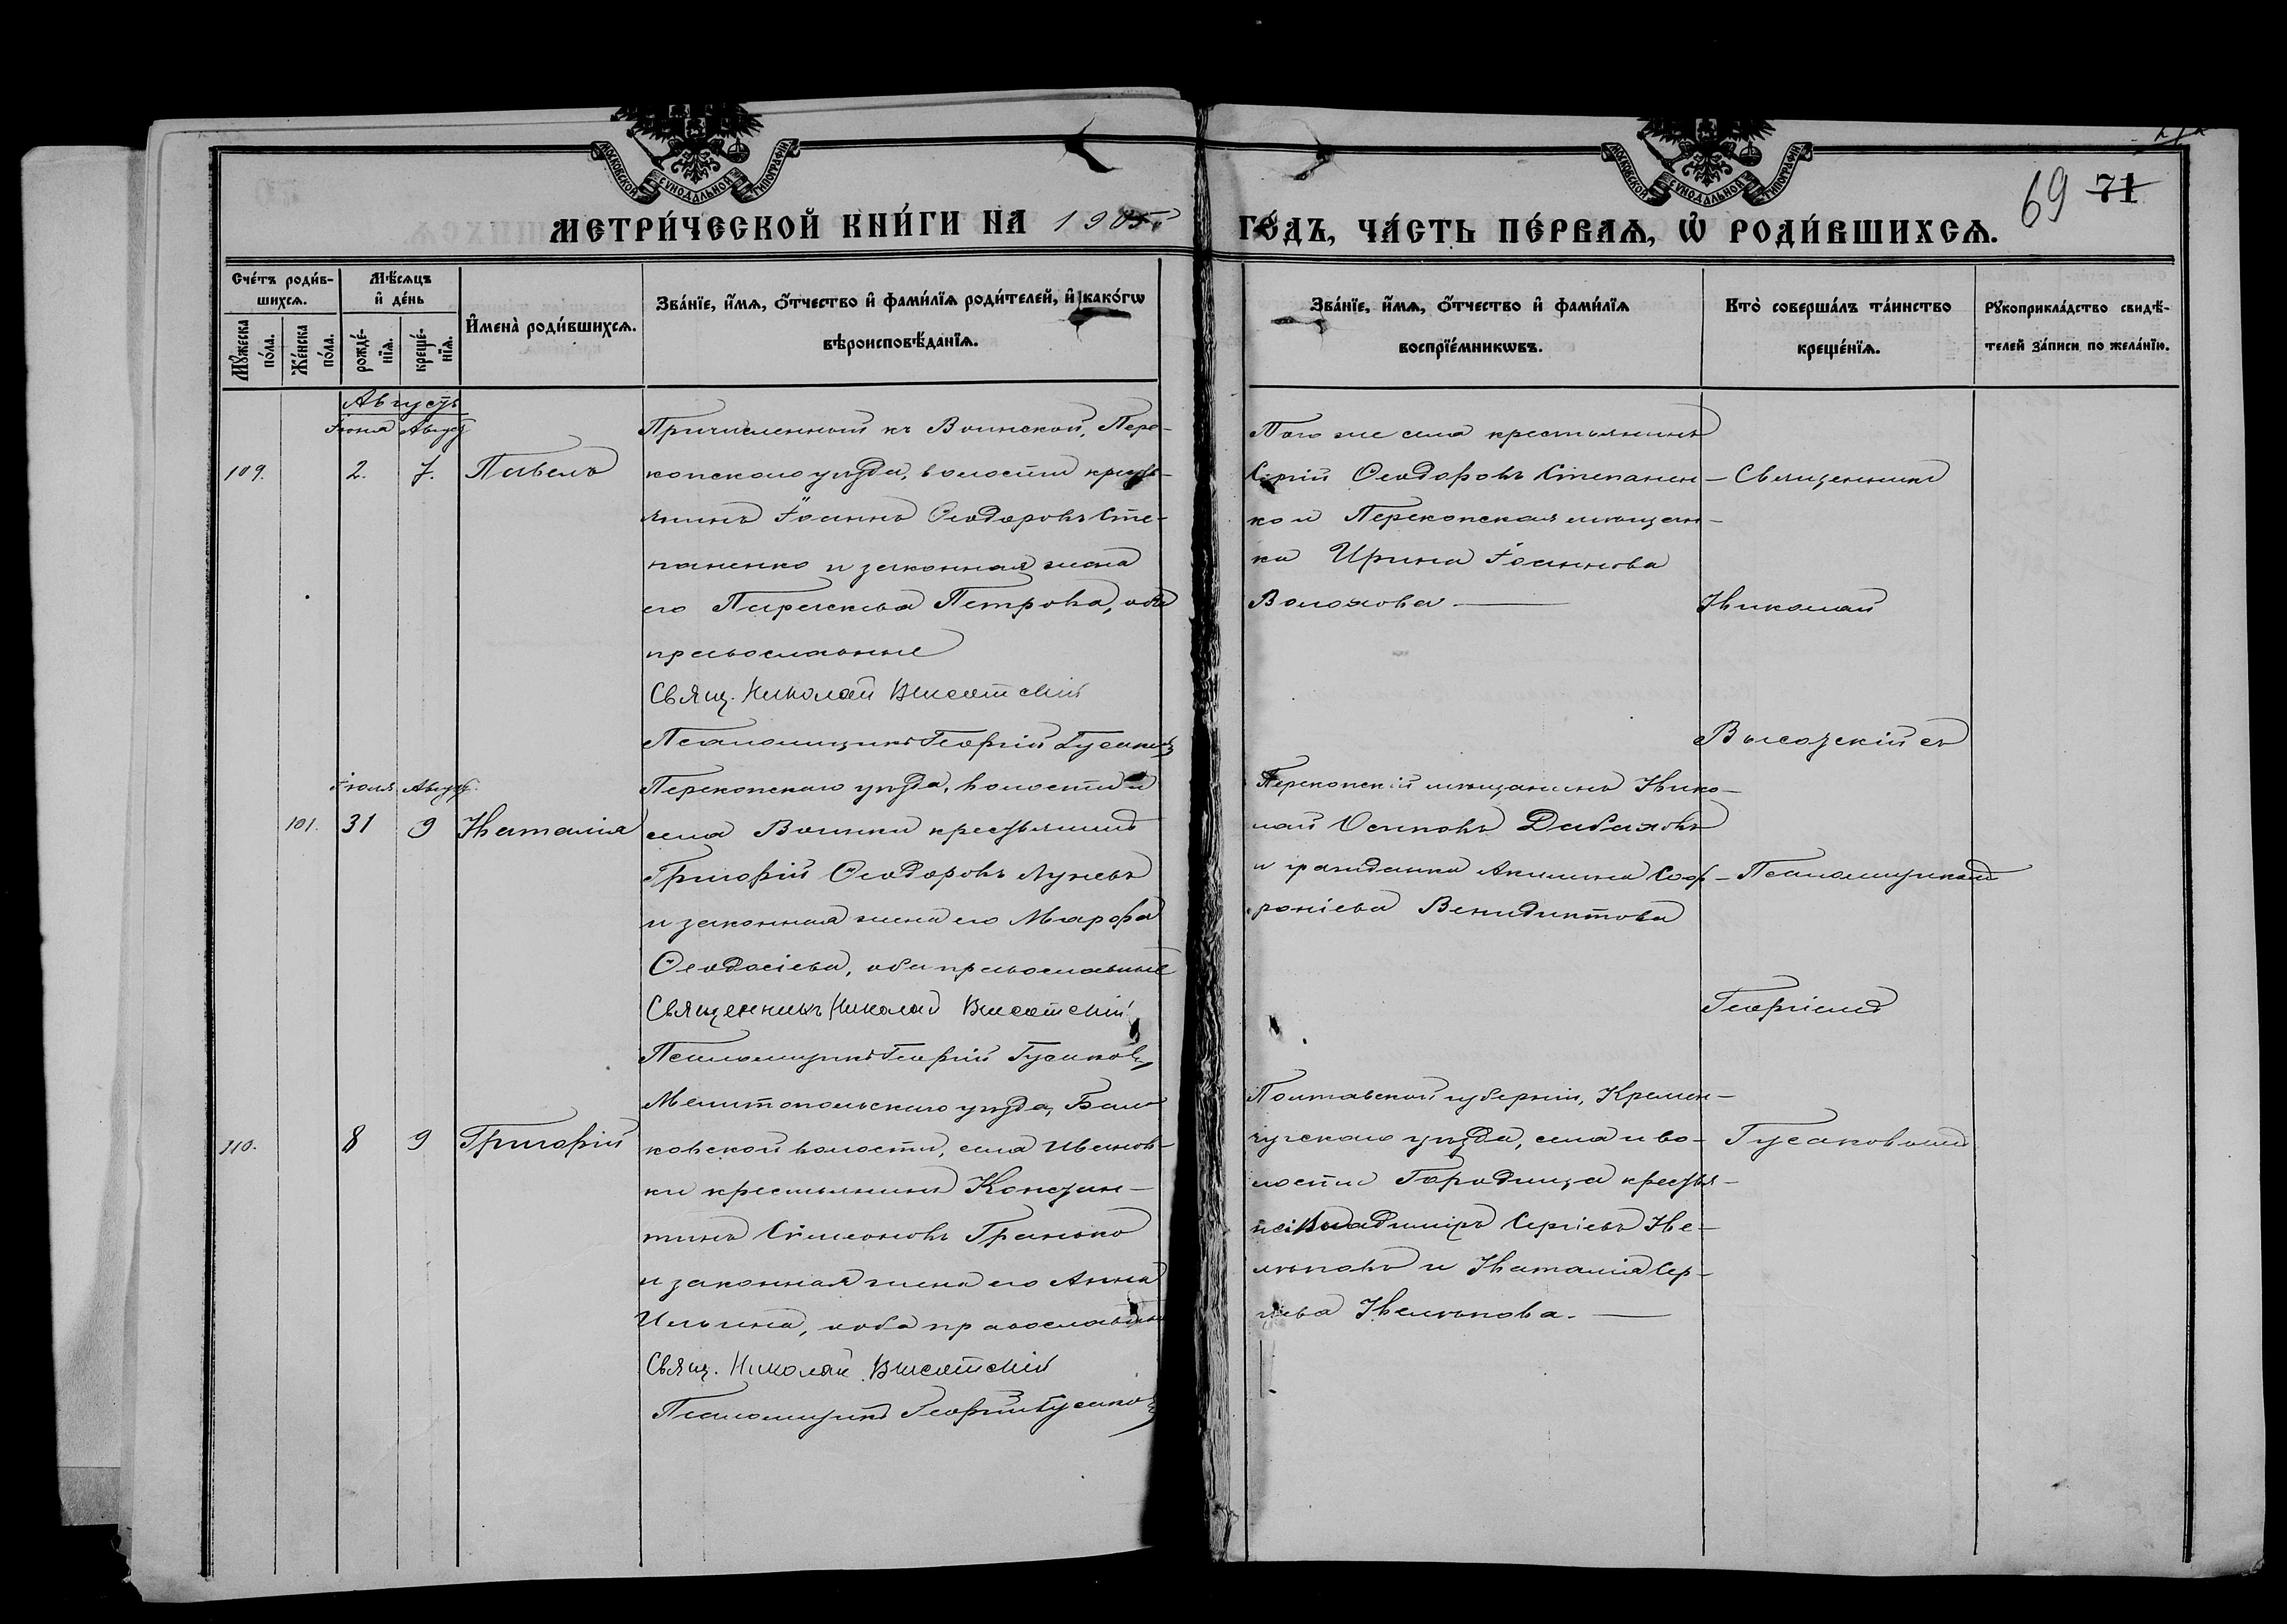 МОСКОВСКОЙ СУНОДАЛЬНОЙ ТИПОГРАФІИ
МОСКОВСКОЙ СУНОДАЛЬНОЙ ТИПОГРАФІИ
69 71
МЕТРИ́ЧЕСКОЙ КНИ́ГИ НА 1905
ГО́ДЪ, ЧА́СТЬ ПЕ́РВАѦ, Ѡ҆ РОДИ́ВШИХСѦ.
Сче́тъ роди́в-
шихсѧ.
Мꙋ́жеска по́ла.
Же́нска по́ла.
Мѣ́сѧцъ
и҆ де́нь
рожде́-
нїѧ.
креще́-
нїѧ.
И҆мена̀ роди́вшихсѧ.
Зва́нїе, и҆́мѧ, ѻ҆́тчество и҆ фами́лїѧ роди́телей, и҆ како́гѡ
вѣроисповѣ́данїѧ.
Зва́нїе, и҆́мѧ, ѻ҆́тчество и҆ фами́лїѧ
воспрїе́мникѡвъ.
Кто̀ соверша́лъ та́инство
креще́нїѧ.
Рꙋкоприкла́дство свидѣ́-
телей за́писи по жела́нїю.
Августъ
Іюля Август
109.
2.
7.
Павелъ
Причисленный къ Воинской, Пере-
копского уѣзда, волости кресть-
янинъ Іоаннъ Ѳеодоровъ Сте-
паненко и законная жена
его Параскева Петрова, оба
православные
Свящ. Николай Высотскій
Псаломщикъ Георгій Гусаковъ
Того же села крестьянинъ
Сергій Ѳеодоровъ Степанен-
ко и Перекопская мѣщан-
ка Ирина Іоаннова
Волохова
Священникъ
Николай
Высотскій съ
Іюля Август
101.
31
9
Наталія
Перекопскаго уѣзда, волости и
села Воинки крестьянинъ
Григорій Ѳеодоровъ Луневъ
и законная жена его Марѳа
Ѳеодосіева, оба православные
Священникъ Николай Высотскій
Псаломщикъ Георгій Гусаковъ
Перекопскій мѣщанинъ Нико-
лай Осиповъ Дабаховъ
и гражданка Акилина Соф-
роніева Венидиктова
Псаломщикомъ
Георгіемъ
110.
8
9
Григорій
Мелитопольскаго уѣзда,
ковской волости, села Иванов-
ки крестьянинъ Констан-
тинъ Симеоновъ Гранько
и законная жена его Анна
Ильина, оба православные
Свящ. Николай Высотскій
Псаломщикъ Георгій Гусаковъ
Полтавской губерніи, Кремен-
чугскаго уѣзда, села и во-
лости Городища крестья-
не Владиміръ Сергіевъ Не-
лѣповъ и Наталія Сер-
гіева Нелѣпова.
Гусаковымъ